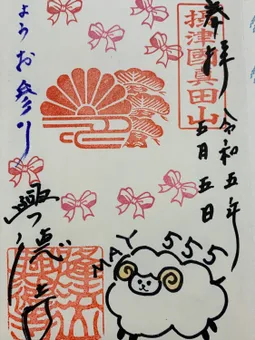 奉拝
摂津國真田山
令和五年
五月五日
ようお参り
MAY 555